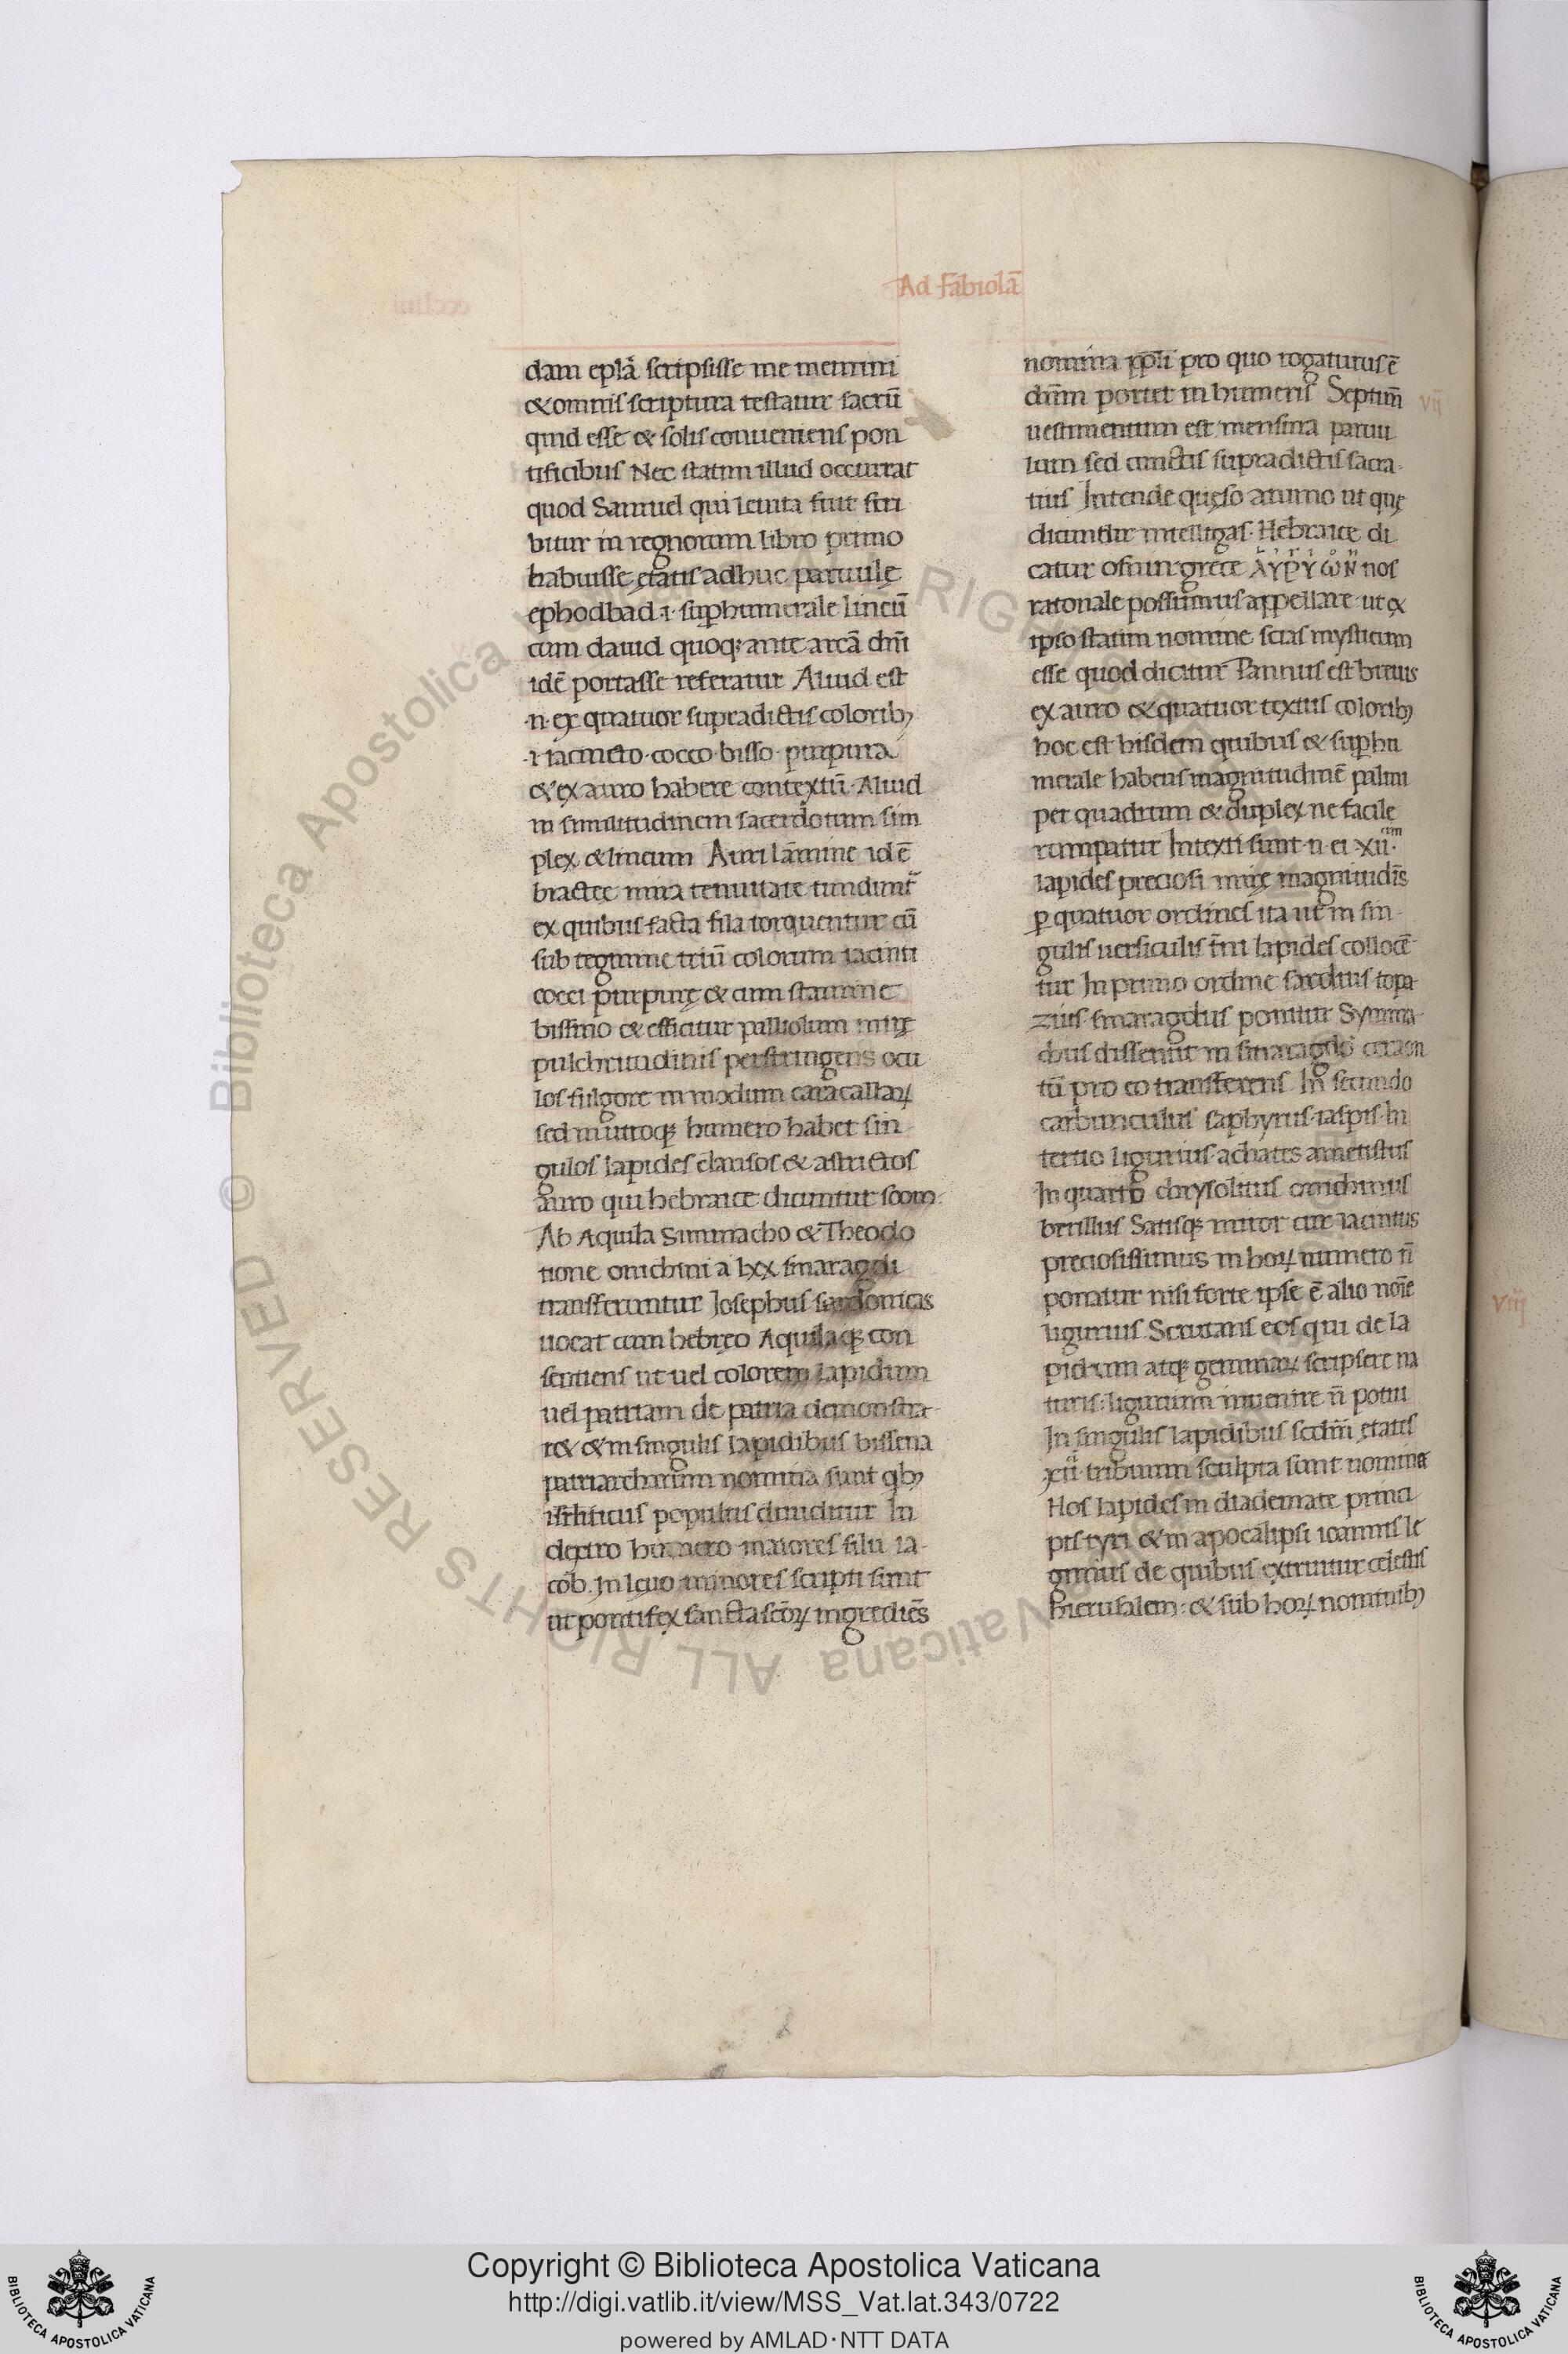 Ad Fabiolā
dam eplā scripsisse me memini
& omnis scriptura testatur sacrū
quid esse & solis conueniens pon
tificibus Nec statim illud occurrat
quod Samuel qui leuita fuit scri
bitur in regnorum libro primo
habuisse ętatis adhuc paruulę
ephodbad .i. suphumerale lineū
cum dauid quoq; ante arcā dn̄i
idē portasse referatur Aliud est
.n. ex quatuor supradictis colorib;
.i. iacincto. cocco. bisso. purpura
& ex auro habere contextū. Aliud
in similitudinem sacerdotum sim
plex & lineum Auri lāmine id ē
bractee mira tenuitate tundunt᷑
ex quibus facta fila torquentur cū
sub tegmine triū colorum iacinti
cocci purpurę & cum stamine
bissino & efficitur palliolum mirę
pulchritudinis perstringens ocu
los fulgore in modum caracallaꝝ
sed in utroq; humero habet sin
gulos lapides clausos & astrictos
auro qui hebraice dicuntur soom.
Ab Aquila Simmacho & Theodo
tione onichini a lxx smaragdi
transferuntur Josephus sardonicas
uocat cum hebręo Aquilaq; con
sentiens ut uel colorem lapidum
uel patriam de patria demonstra
r& & in singulis lapidibus bissena
patriarcharum nomina sunt qb;
isrłiticus populus diuiditur In
dextro humero maiores filii ia
cob. In lęuo minores scripti sunt
ut pontifex sancta scōꝝ ingrediēs
nomina ppli pro quo rogaturus ē
dn̄m portet in humeris Septim̄
vij
uestimentum est mensura paruu
lum sed cunctis supradictis sacra
tius Intende quęso animo ut quę
dicuntur intelligas. Hebraice di
catur grece nos
rationale possumus appellare ut ex
ipso statim nomine scias mysticum
esse quod dicitur Pannus est breuis
ex auro & quatuor textus colorib;
hoc est hisdem quibus & suphu
merale habens magnitudinē palmi
per quadrum & duplex ne facile
rumpatur Intexti sunt .n. ei xii.cim
lapides preciosi mirę magnitudīs
ꝑ quatuor ordines ita ut in sin
gulis uersiculis t̄ni lapides collocē
tur In primo ordine sardius topa
zius smaragdus ponitur Symma
chus dissentit in smaragdo ceraon
tū pro eo transferens In secundo
carbunculus saphyrus. iaspis. In
tertio ligurius achates ametistus
In quarto chrysolitus onichinus
berillus Satisq; miror cur iacintus
preciosissimus in hoꝝ numero n̄
ponatur nisi forte ipse ē alio noīe
viij
ligurius. Scrutans eos qui de la
pidum atq; gemmaꝝ scripsere na
turis: ligurium inuenire n̄ potui
In singulis lapidibus scdm̄ ętatis
xii tribuum sculpta sunt nomina
Hos lapides in diademate princi
pis tyri & in apocalipsi ioannis le
gimus de quibus extruitur celestis
hierusalem: & sub hoꝝ nominib;
© Biblioteca Apostolica Vaticana ALL RIGHTS RESERVED
Copyright © Biblioteca Apostolica Vaticana
http://digi.vatlib.it/view/MSS_Vat.lat.343/0722
powered by AMLAD·NTT DATA
BIBLIOTECA APOSTOLICA VATICANA
BIBLIOTECA APOSTOLICA VATICANA